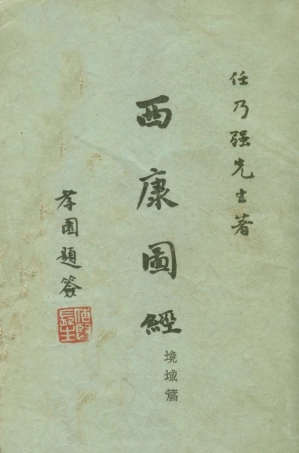 任乃强先生著
西康圖經
境域篇
孝園題簽